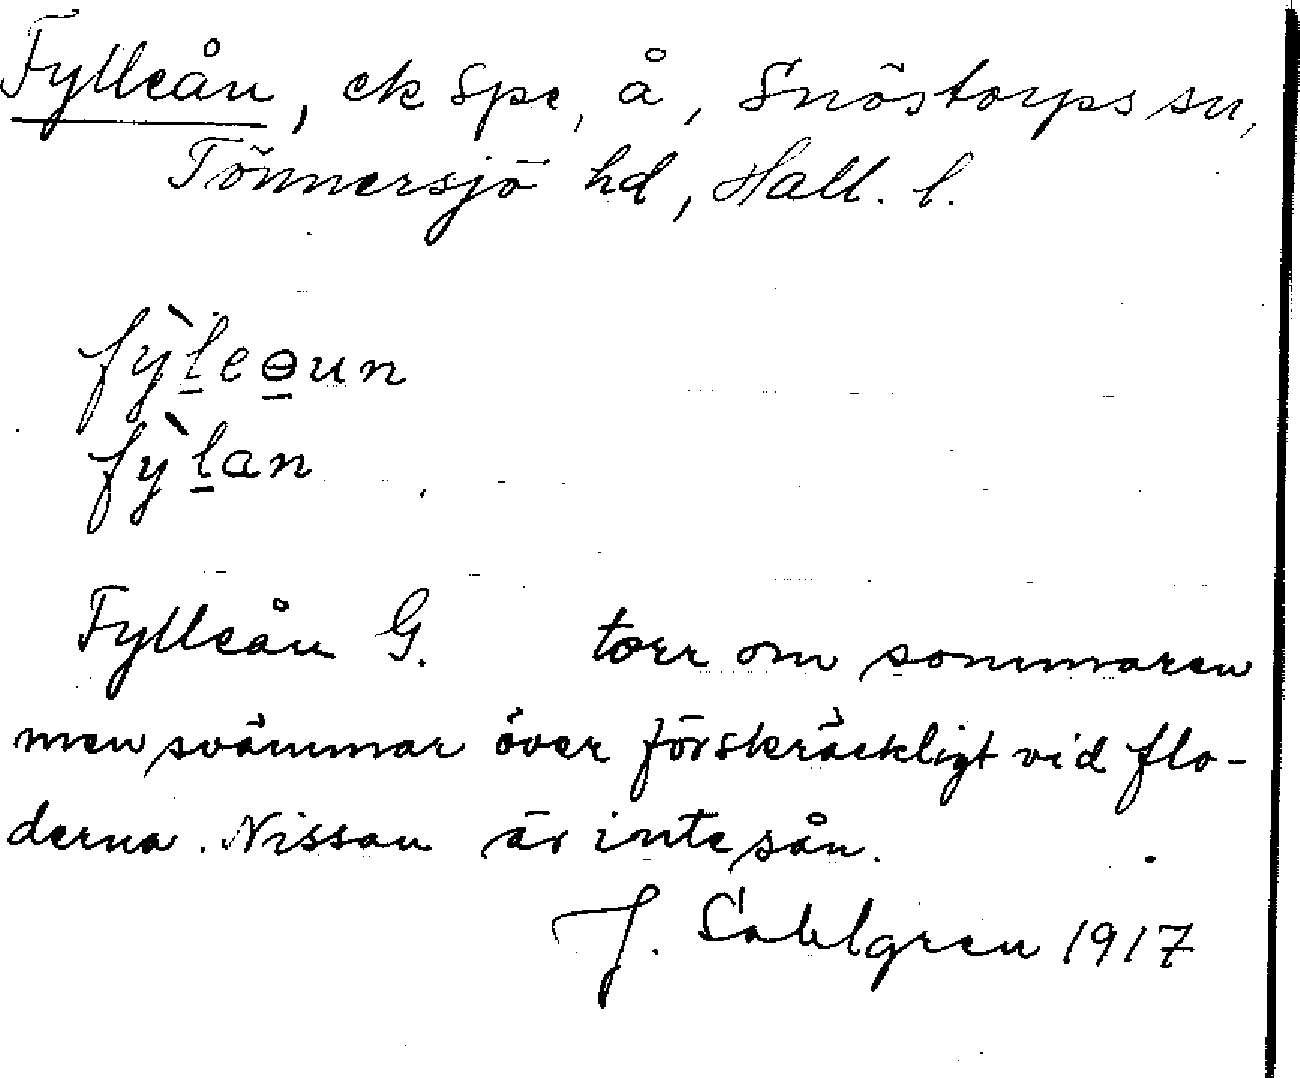 Fylleån, ek Spe, å, Snöstorps sn,
Tönnersjö hd, Hall. l.
fỳleɵun
fỳlan
Fylleån G. torr om sommaren
men svämmar över förskräckligt vid flo-
derna. Nissan är inte sån.
J. Sahlgren 1917